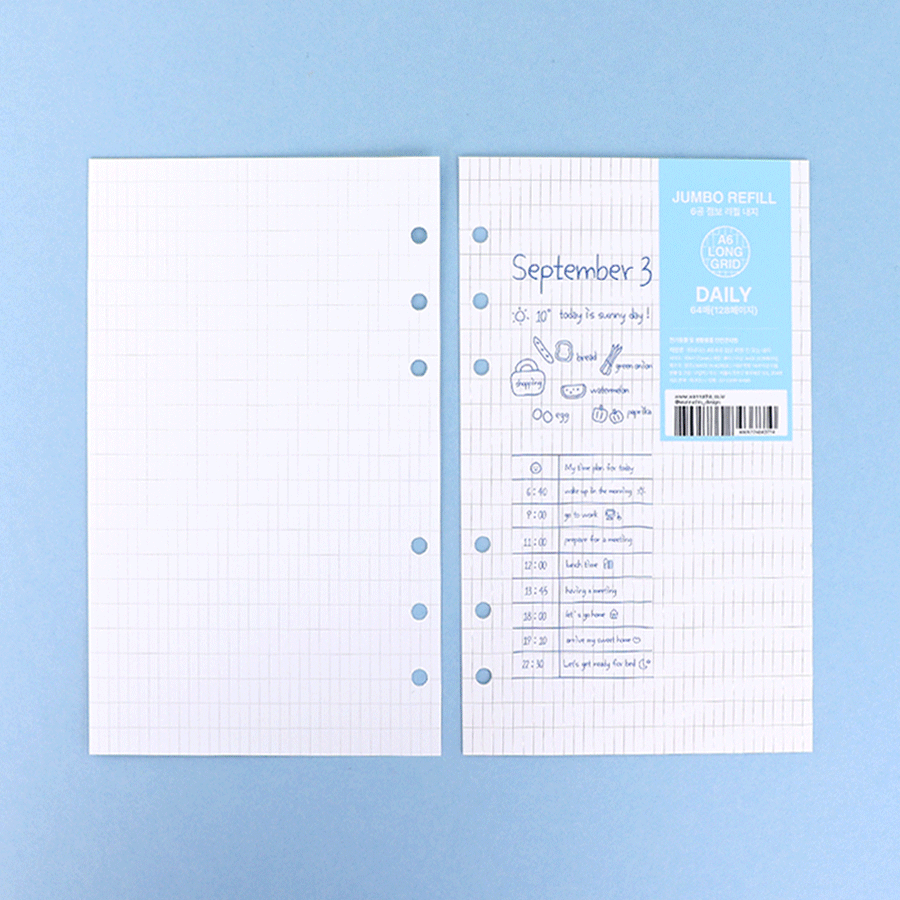 September 3
10° today is sunny day!
bread
green onion
shopping
watermelon
egg
paprika
My time plan for today
6:40 wake up in the morning
9:00 go to work
11:00 prepare for a meeting
12:00 lunch time
13:45 having a meeting
18:00 let's go home
19:10 arrive my sweet home
22:30 Let's get ready for bed
JUMBO REFILL
6공 점보 리필 내지
A6
LONG
GRID
DAILY
64매(128페이지)
www.wannathis.co.kr
@wannathis_design